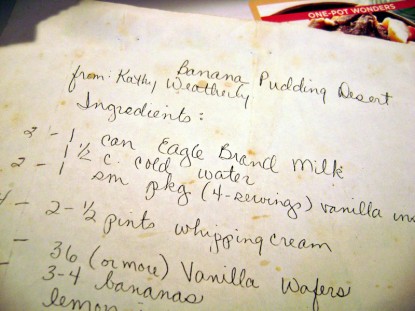 ONE-POT WONDERS
Banana Pudding Desert
from: Kathy Weatherly
Ingredients:
2 - 1 can Eagle Brand Milk
1 ½ c. cold water
2 - 1 sm pkg (4-servings) vanilla ins
4 - 2-½ pints whipping cream
- 36 (or more) Vanilla Wafers
- 3-4 bananas
lemon